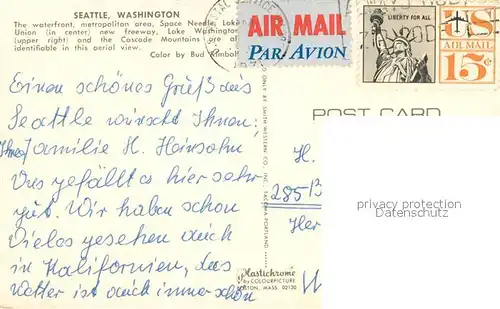 SEATTLE, WASHINGTON
The waterfront, metropolitan area, Space Needle, Lake
Union (in center) new freeway, Lake Washington
(upper right) and the Cascade Mountains are all
identifiable in this aerial view.
Color by Bud Kimball
AIR MAIL
PAR AVION
LIBERTY FOR ALL
US
AIR MAIL
15¢
POST CARD
Einen schönes Gruß aus
Seattle wünscht Ihnen:
Ihre Familie H. Heinsohn
Uns gefällt es hier sehr
gut. Wir haben schon
Vieles gesehen auch
in Kalifornien, das
Wetter ist auch immer schön
H.
285B
Her
privacy protection
Datenschutz
Plastichrome
by COLOURPICTURE
BOSTON, MASS. 02130